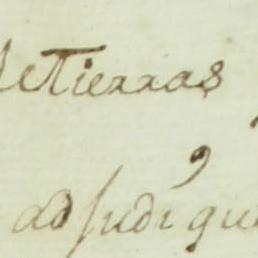 de Tierras
adjudi qu